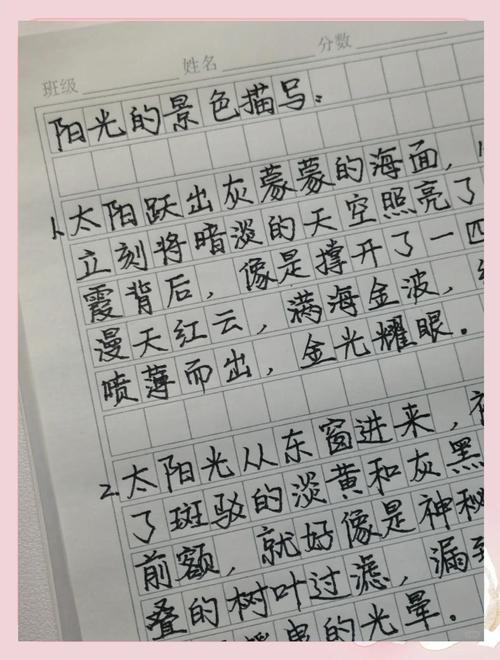 班级 姓名 分数
阳光的景色描写:
1.太阳跃出灰蒙蒙的海面,
立刻将暗淡的天空照亮了
霞背后,像是撑开了一
漫天红云,满海金波,
喷薄而出,金光耀眼.
2.太阳光从东窗进来,
了斑驳的淡黄和灰黑
前额,就好像是神秘
叠的树叶过滤,漏
的光晕.